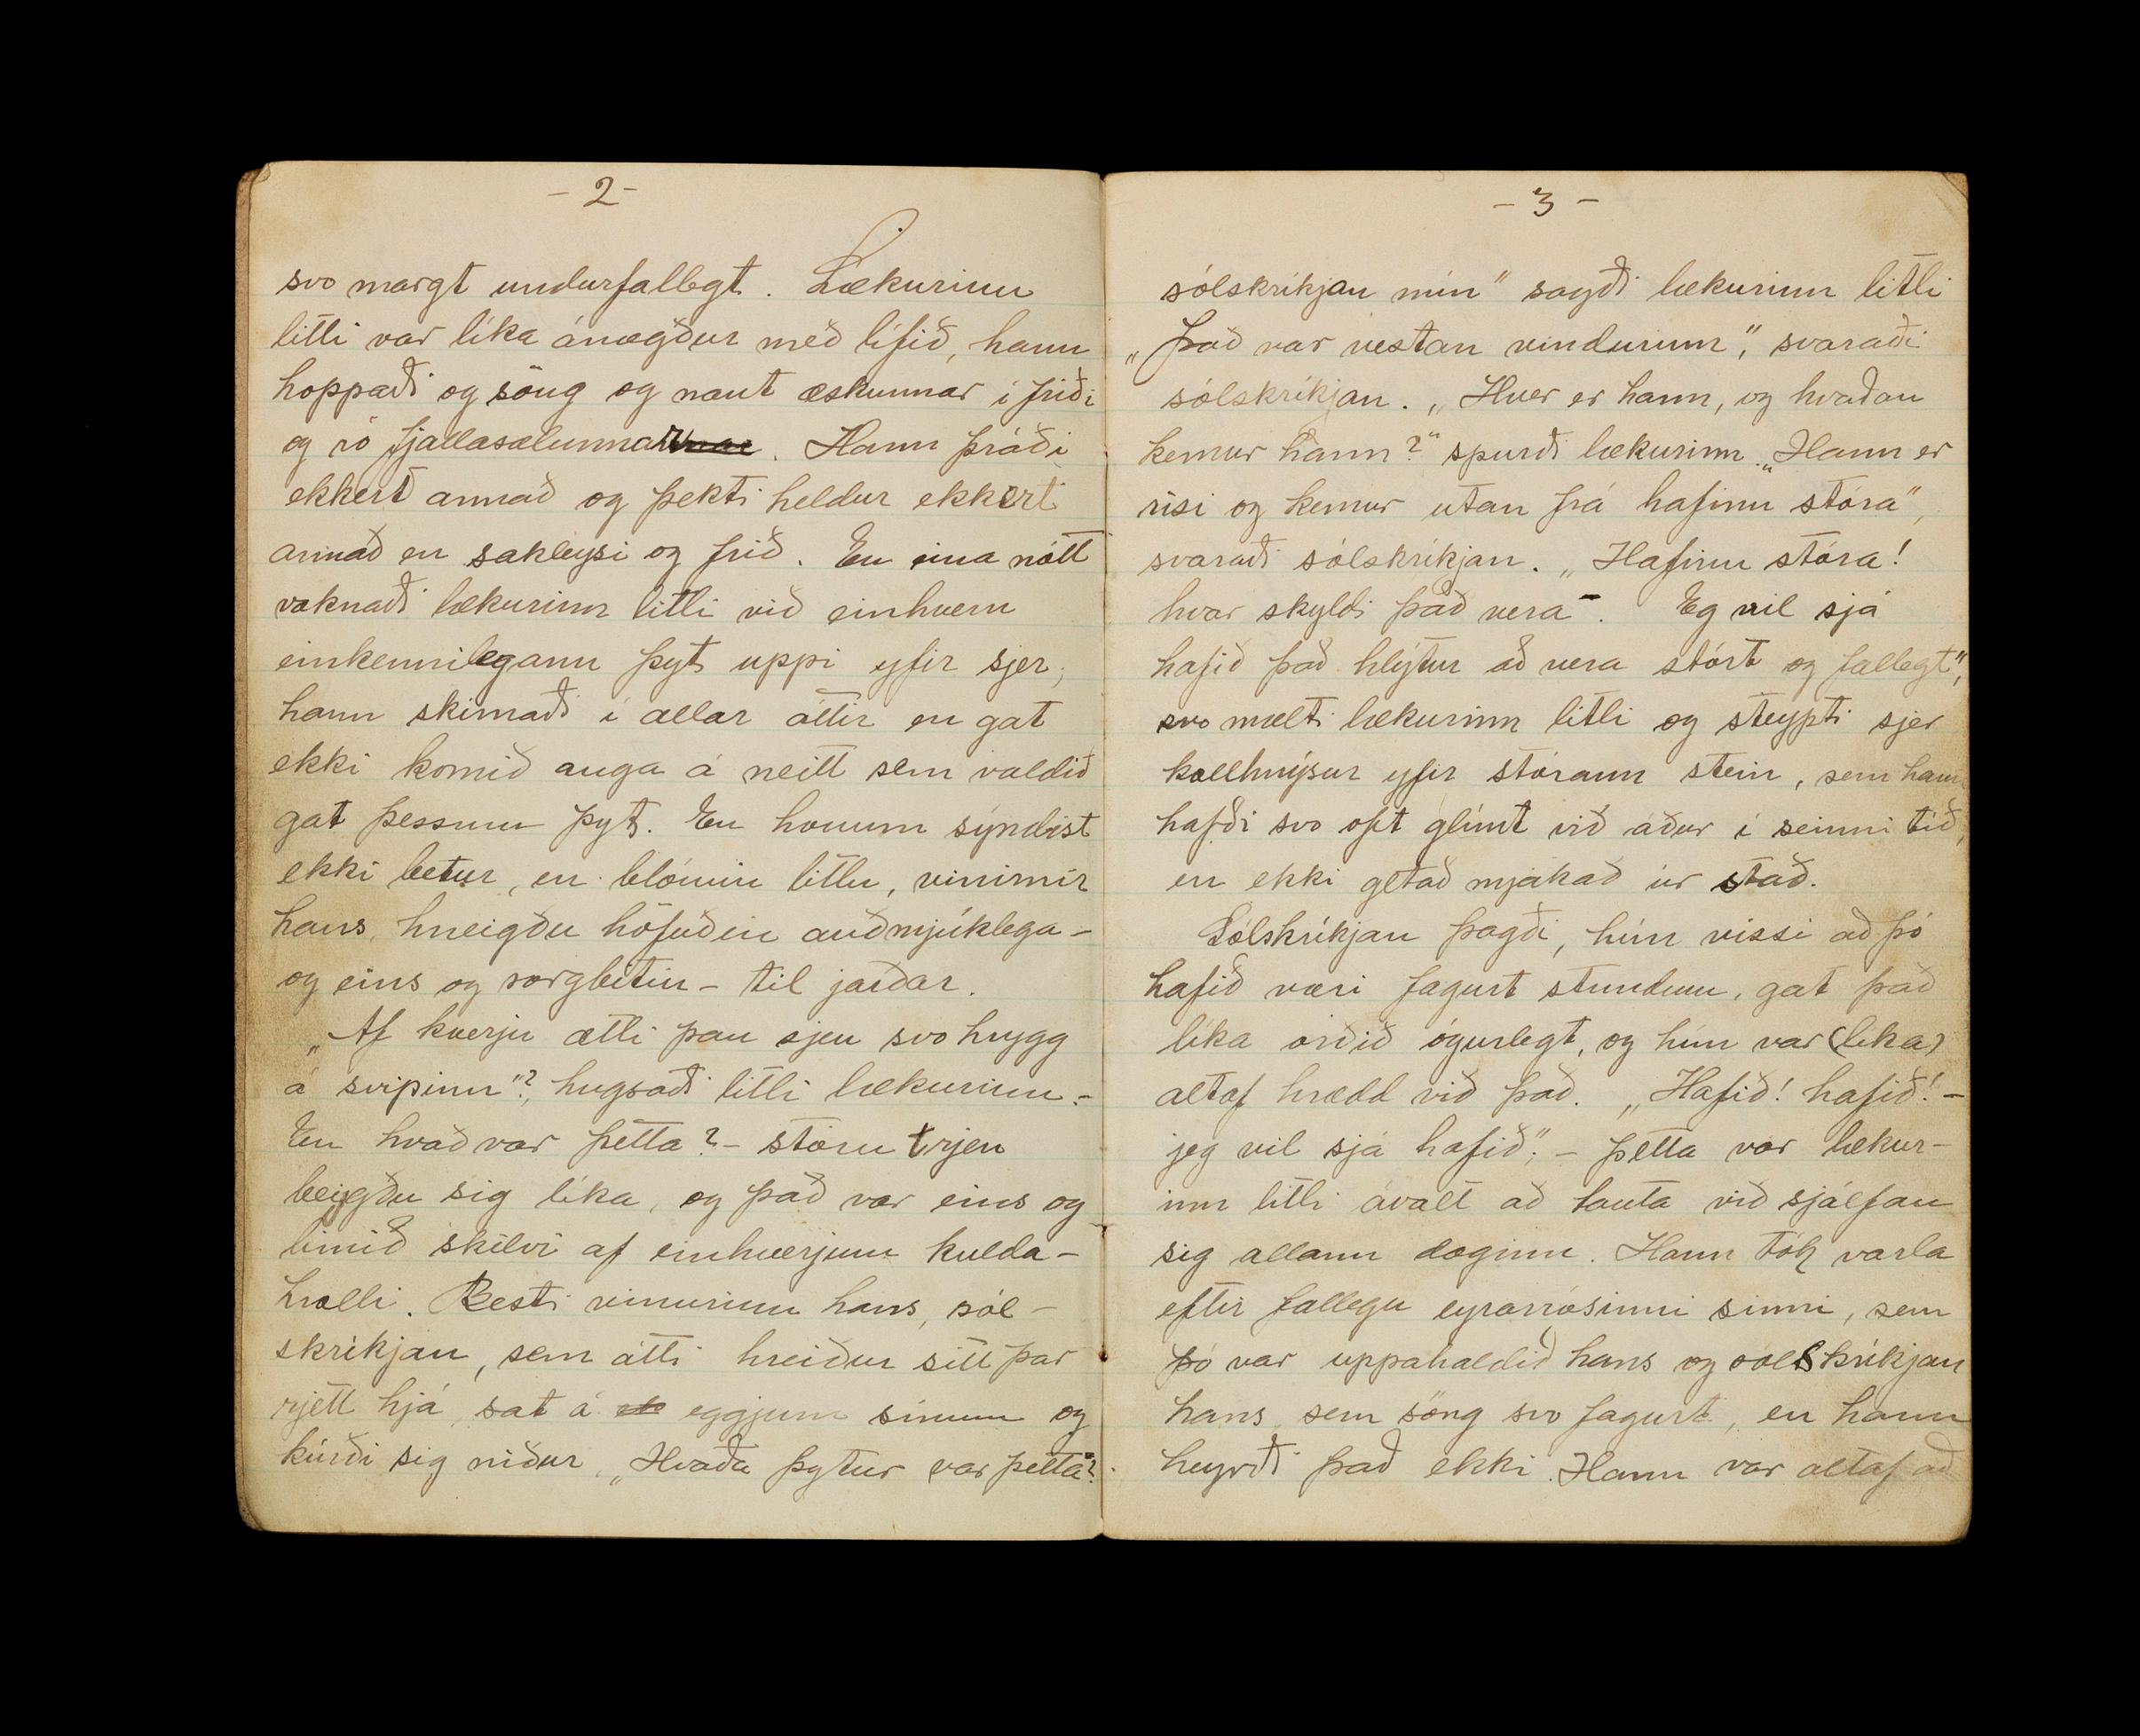 - 2 -
svo margt undurfallegt. Lækurinn
litli var líka ánægður með lífið, hann
hoppaði og söng og naut æskunnar í friði
og ró fjallasælunnar. Hann þráði
ekkert annað og þekti heldur ekkert
annað en sakleysi og frið. En eina nótt
vaknaði lækurinn litli við einhvern
einkennilegann þyt uppi yfir sjer,
hann skimaði í allar áttir en gat
ekki komið auga á neitt sem valdið
gat þessum þyt. En honum sýndist
ekki betur, en blómin litlu, vinirnir
hans, hneigðu höfuðin auðmjúklega -
og eins og sorgbitin - til jarðar.
„Af hverju ætli þau sjeu svo hrygg
á svipinn"?, hugsaði litli lækurinn. -
En hvað var þetta? - stóru trjen
beigðu sig líka, og það var eins og
limið skilvi af einhverjum kulda-
hrolli. Besti vinurinn hans, sól-
skríkjan, sem átti hreiður sitt þar
rjett hjá, sat á eggjum sínum og
kúrði sig niður. „Hvaða þytur var þetta"?
- 3 -
sólskríkjan mín" sagði lækurinn litli
„Það var vestan vindurinn", svaraði
sólskríkjan. „Hver er hann, og hvaðan
kemur hann?" spurði lækurinn. „Hann er
risi og kemur utan frá hafinu stóra",
svaraði sólskríkjan. „Hafinu stóra!
hvar skyldi það vera -. Eg vil sjá
hafið það hlýtur að vera stórt og fallegt",
svo mælti lækurinn litli og steypti sjer
kollhnýsur yfir stórann stein, sem hann
hafði svo oft glímt við áður í seinni tíð,
en ekki getað mjakað úr stað.
Sólskríkjan þagði, hún vissi að þó
hafið væri fagurt stundum, gat það
líka orðið ógurlegt, og hún var (líka)
altaf hrædd við það. „Hafið! hafið! -
jeg vil sjá hafið", - þetta var lækur-
inn litli ávalt að tauta við sjálfan
sig allann daginn. Hann tók varla
eftir fallegu eyrarrósinni sinni, sem
þó var uppáhaldið hans og sólskríkjan
hans sem söng svo fagurt, en hann
heyrði það ekki. Hann var altaf að